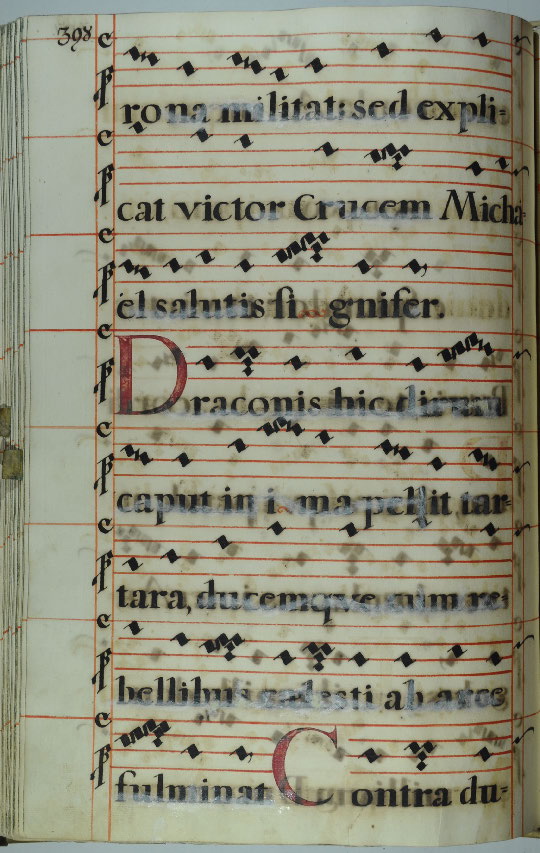 398
rona militat: sed expli-
cat victor Crucem Micha-
el salutis si gnifer.
Draconis hic dirum
caput in ima pellit tar-
tara, ducemque cum re-
bellibus cælesti ab arce
fulminat Contra du-